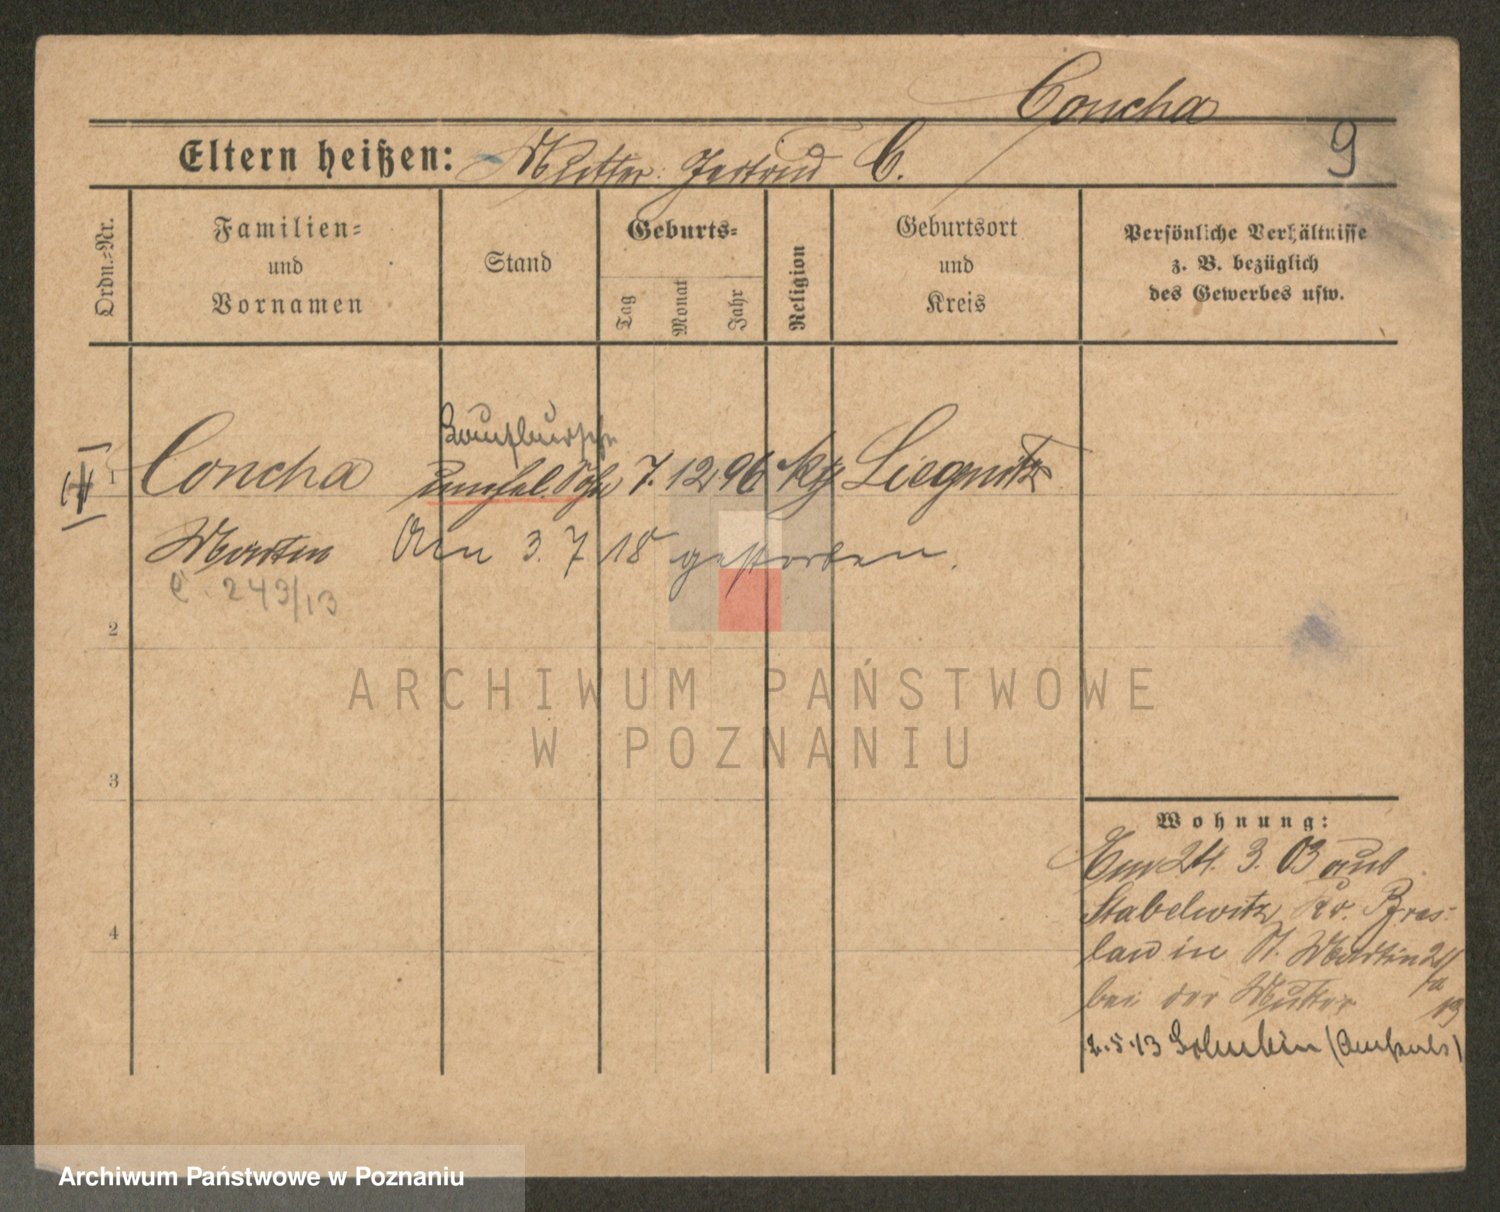 Concha
Eltern heißen: Mutter: Gertrud C.
9
Ordn.-Nr.
Familien-
und
Vornamen
Stand
Geburts-
Tag
Monat
Jahr
Religion
Geburtsort
und
Kreis
Persönliche Verhältnisse
z. B. bezüglich
des Gewerbes usw.
Laufbursche
1 Concha unehel. Sohn 7. 12 96 kg Liegnitz
Martin Am 3. 7 18 gestorben.
C. 243/13
2
3
4
ARCHIWUM PAŃSTWOWE
W POZNANIU
Wohnung:
24. 3. 03 aus
Stabelwitz, Kr. Bres-
lau in St. Martin
bei der Mutter
2.5.13 Schubin
Archiwum Państwowe w Poznaniu